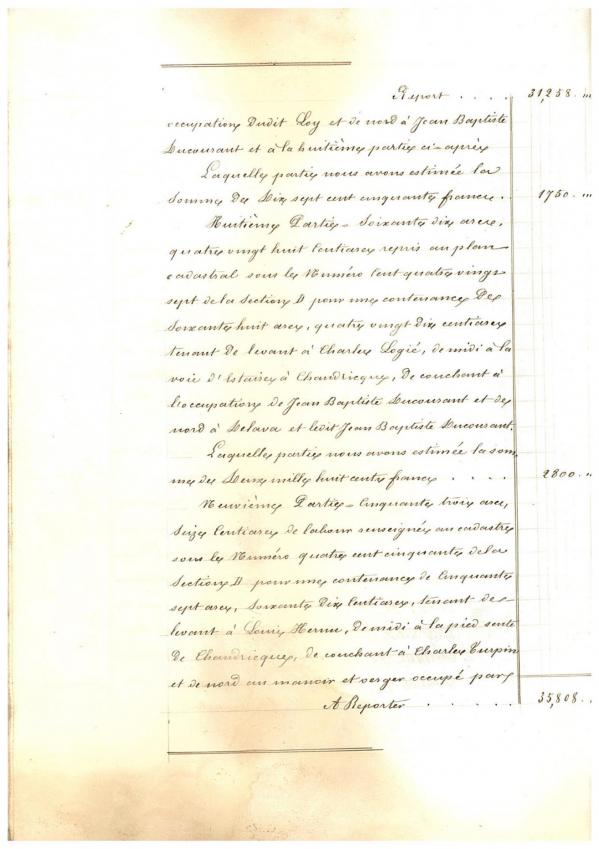 Report . . . . 31,258. "
occupation Dudit Loy et de nord à Jean Baptiste
Ducourant et à la huitième partie ci-après
Laquelle partie nous avons estimée la
Somme de Dix sept cent cinquante francs. 1750. "
Huitième Partie - Soixante dix ares,
quatre vingt huit Centiares repris au plan
cadastral sous le Numéro Cent quatre vingt
sept de la Section D pour une contenance De
Soixante huit ares, quatre vingt Dix centiares
tenant de levant à Charles Logié, de midi à la
voie d'Estaires à Chandricque, De couchant à
l'occupation de Jean Baptiste Ducourant et de
nord à Delava et ledit Jean Baptiste Ducourant.
Laquelle partie nous avons estimée la som-
me de Deux mille huit cents francs . . . . 2800. "
Neuvième Partie - Cinquante trois ares,
Seize Centiares de labour renseignée au cadastre
sous le Numéro quatre cent cinquante de la
Section D pour une contenance de Cinquante
sept ares, Soixante Dix Centiares, tenant de
levant à Louis Hernu, de midi à la pied sente
de Chandricque, de couchant à Charles Turpin
et de nord au manoir et verger occupé par
A Reporter . . . . . 35,808. "